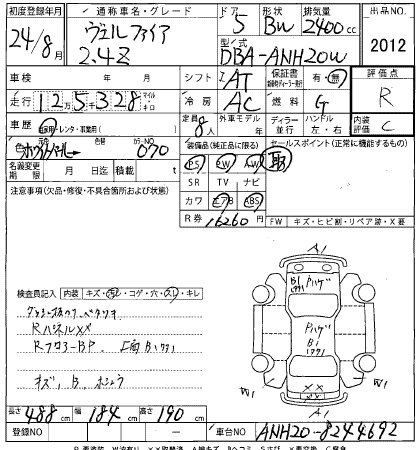 初度登録年月 通称車名・グレード ドア 形状 排気量 出品NO.
24/8月 ヴェルファイア 2.4Z 5 BW 2400cc 2012
型式 DBA-ANH20W
車検 年 月 シフト IAT 保証書 有・無 評価点
走行 125千328 マイル キロ 冷房 AC 燃料 G R
車歴 自家用・レンタ・事業用( ) 定員 8人 外車モデル 年 ディーラー 並行 ハンドル 左・右 内装評価 C
色 元色 ホワイトパール 色替 カラーNO. 070 装備品(純正品に限る) セールスポイント(正常に機能するもの)
名義変更期限 月 日迄 積載 t PS PW AW 取
注意事項(欠品・修復・不具合箇所および状態) SR TV ナビ
カワ エアB ABS
R券 16260円 FW キズ・ヒビ割・リペア跡・X要
A1
B1 Pハゲ
検査員記入 内装 キズ・汚れ・コゲ・穴・スレ・キレ 1991
Pハゲ
RパネルXX B1
RフロアーBP 1991
キズ、B、
XX
長さ 488cm 幅 184cm 高さ 190cm A1
登録NO 車台NO ANH20-8244692